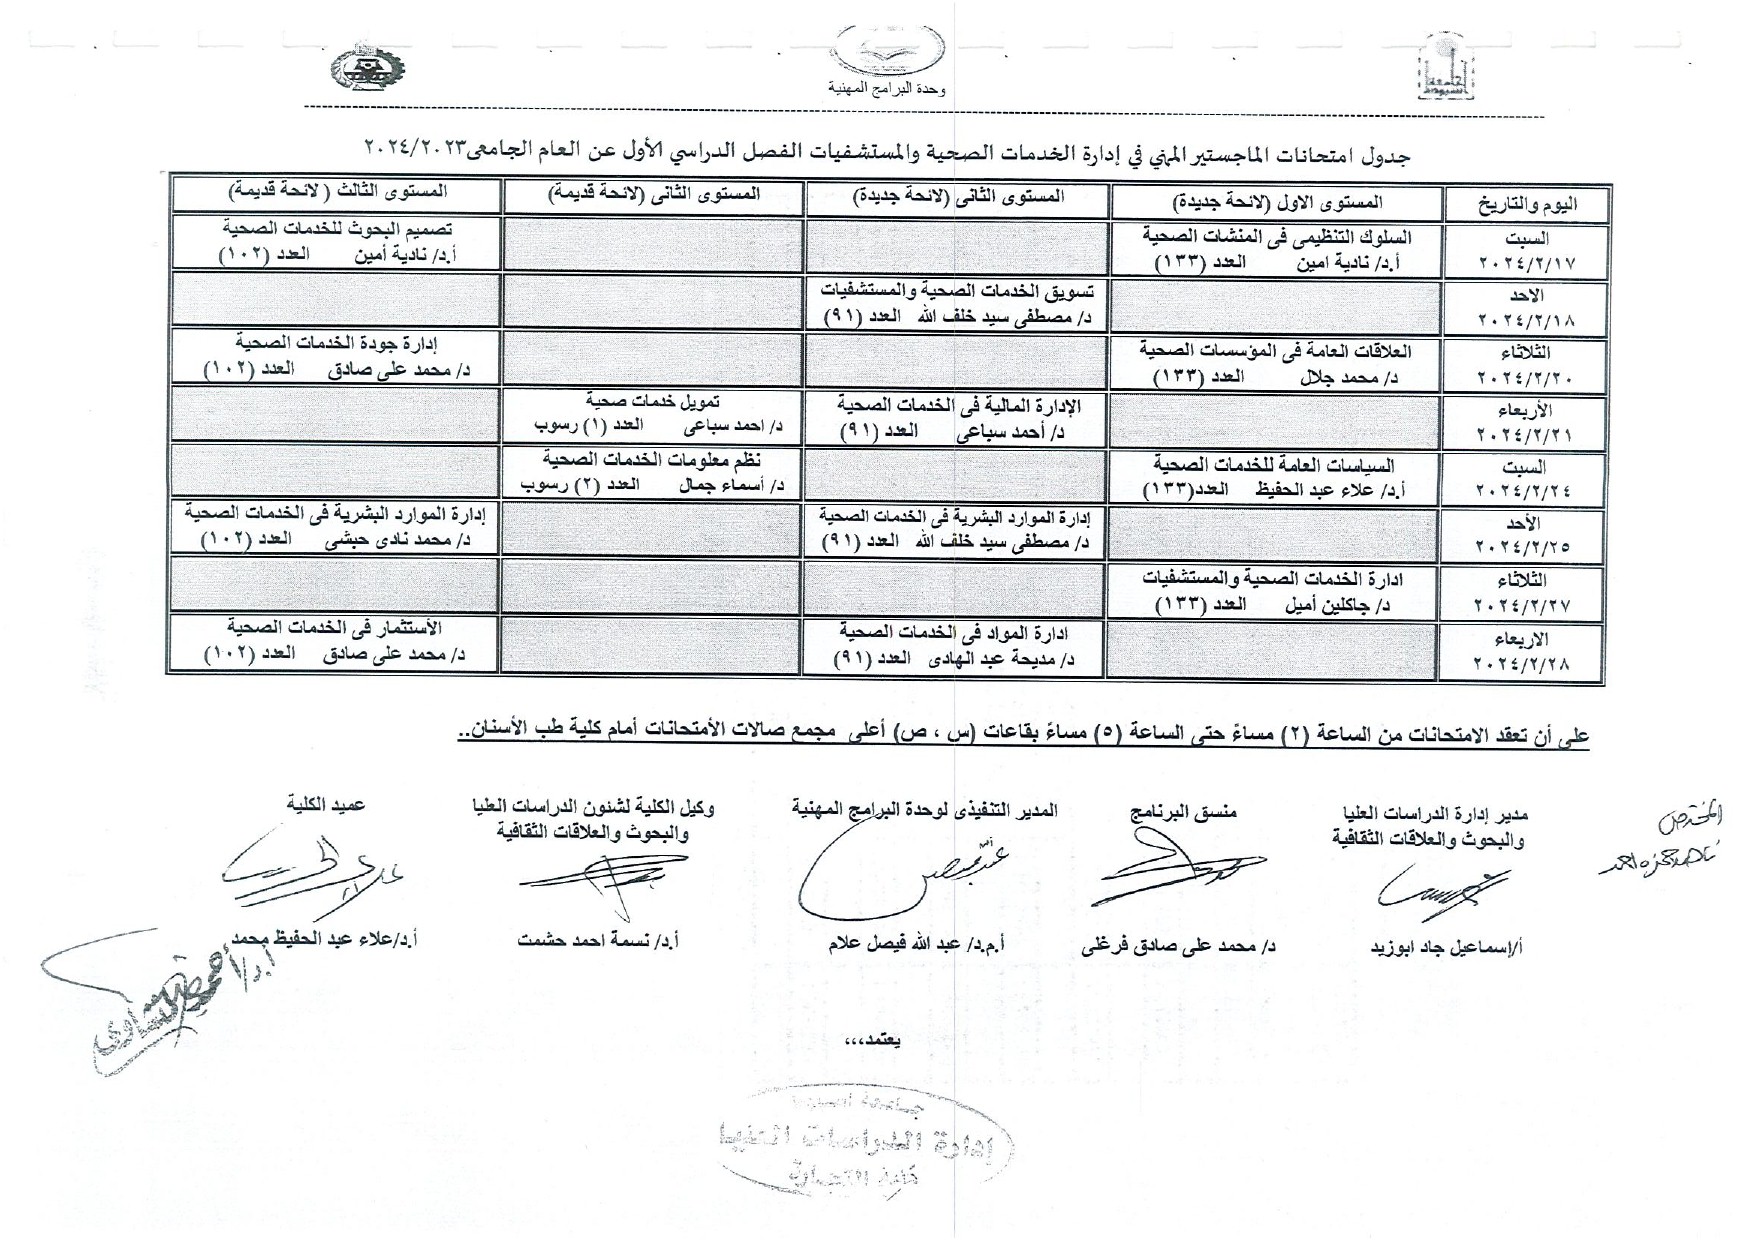 جامعة
أسيوط
وحدة البرامج المهنية
جدول امتحانات الماجستير المهني في إدارة الخدمات الصحية والمستشفيات الفصل الدراسي الأول عن العام الجامعى٢٠٢٤/٢٠٢٣
اليوم والتاريخ
المستوى الاول (لائحة جديدة)
المستوى الثانى (لائحة جديدة)
المستوى الثانى (لائحة قديمة)
المستوى الثالث ( لائحة قديمة)
السبت
٢٠٢٤/٢/١٧
السلوك التنظيمى فى المنشات الصحية
أ.د/ نادية امين العدد (١٣٣)
تصميم البحوث للخدمات الصحية
أ.د/ نادية أمين العدد (١٠٢)
الاحد
٢٠٢٤/٢/١٨
تسويق الخدمات الصحية والمستشفيات
د/ مصطفى سيد خلف الله العدد (٩١)
الثلاثاء
٢٠٢٤/٢/٢٠
العلاقات العامة فى المؤسسات الصحية
د/ محمد جلال العدد (١٣٣)
إدارة جودة الخدمات الصحية
د/ محمد على صادق العدد (١٠٢)
الأربعاء
٢٠٢٤/٢/٢١
الإدارة المالية فى الخدمات الصحية
د/ أحمد سباعى العدد (٩١)
تمويل خدمات صحية
د/ احمد سباعى العدد (١) رسوب
السبت
٢٠٢٤/٢/٢٤
السياسات العامة للخدمات الصحية
أ.د/ علاء عبد الحفيظ العدد(١٣٣)
نظم معلومات الخدمات الصحية
د/ أسماء جمال العدد (٢) رسوب
الأحد
٢٠٢٤/٢/٢٥
إدارة الموارد البشرية فى الخدمات الصحية
د/ مصطفى سيد خلف الله العدد (٩١)
إدارة الموارد البشرية فى الخدمات الصحية
د/ محمد نادى حبشى العدد (١٠٢)
الثلاثاء
٢٠٢٤/٢/٢٧
ادارة الخدمات الصحية والمستشفيات
د/ جاكلين أميل العدد (١٣٣)
الاربعاء
٢٠٢٤/٢/٢٨
ادارة المواد فى الخدمات الصحية
د/ مديحة عبد الهادى العدد (٩١)
الأستثمار فى الخدمات الصحية
د/ محمد على صادق العدد (١٠٢)
على أن تعقد الامتحانات من الساعة (٢) مساءً حتى الساعة (٥) مساءً بقاعات (س ، ص) أعلى مجمع صالات الأمتحانات أمام كلية طب الأسنان..
المختص
مدير إدارة الدراسات العليا
والبحوث والعلاقات الثقافية
أ/إسماعيل جاد ابوزيد
منسق البرنامج
د/ محمد على صادق فرغلى
المدير التنفيذى لوحدة البرامج المهنية
أ.م.د/ عبد الله فيصل علام
وكيل الكلية لشئون الدراسات العليا
والبحوث والعلاقات الثقافية
أ.د/ نسمة احمد حشمت
عميد الكلية
أ.د/علاء عبد الحفيظ محمد
يعتمد،،،
إدارة الدراسات العليا
كلية التجارة